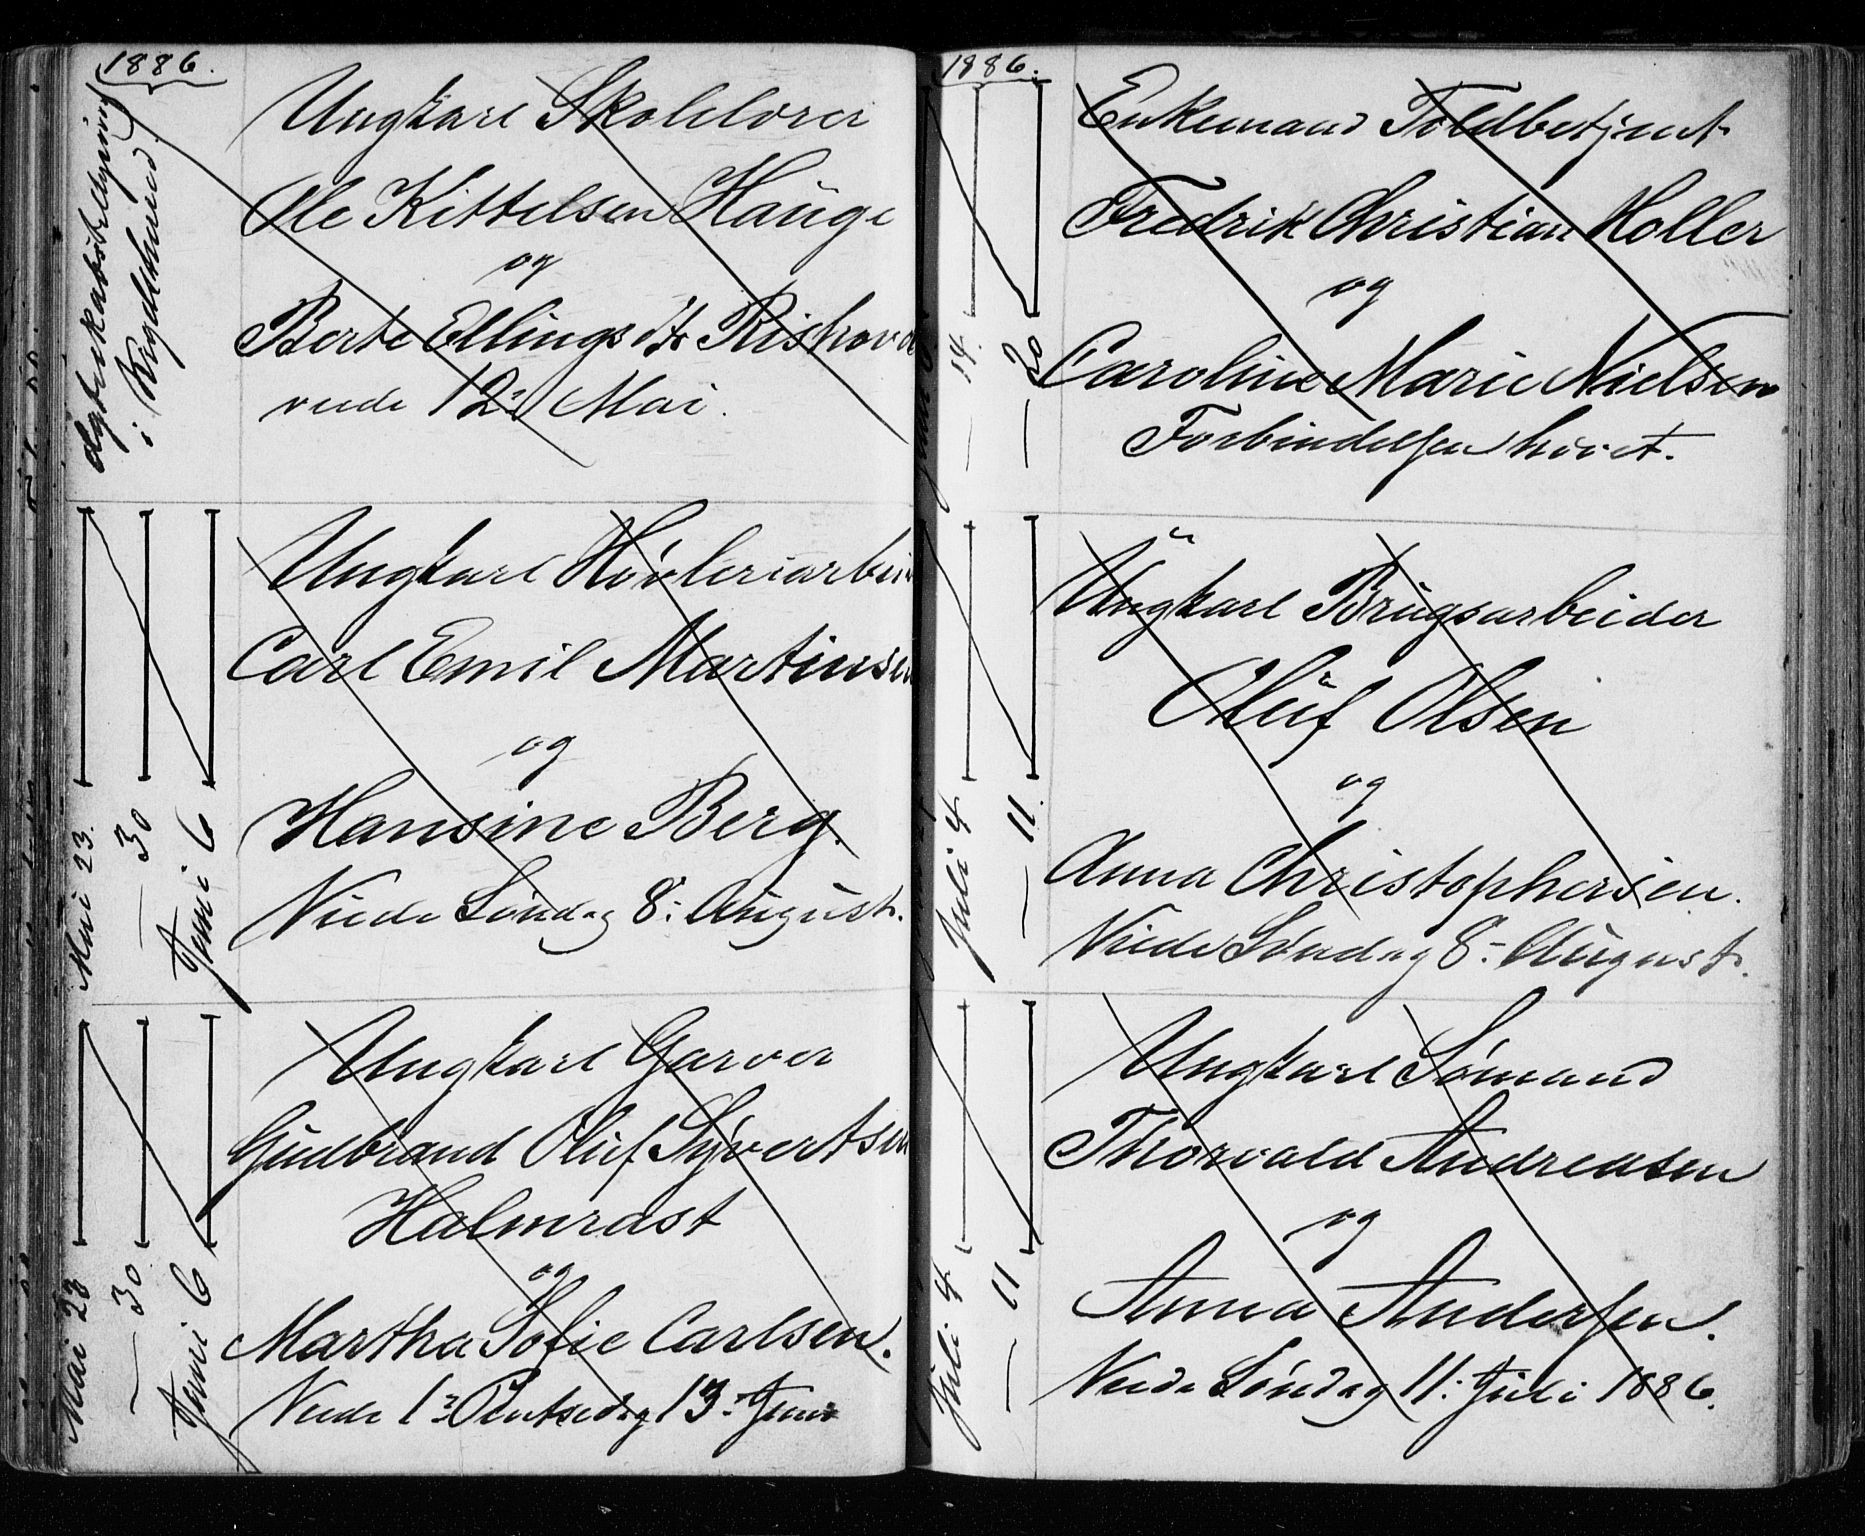 1886.
Ungkarl Skolelærer
Ole Kittelsen Hauge
og
Berte Ellingsdtr Rishovd
viede 12: Mai.
i Krydsherred.
Ungkarl Høvleriarbei
Carl Emil Martinsen
og
Hansine Berg.
Viede Søndag 8: August.
Mai 23.
— 30
Juni 6
Ungkarl Garver
Gudbrand Oluf Syvertsen
Halmrast
og
Martha Sofie Carlsen.
Viede 1: Pintsedag 13: Juni
Mai 23
— 30
Juni 6
1886.
Enkemand Toldbetjent
Fredrik Christian Holler
og
Caroline Marie Nielsen
Forbindelsen hævet.
— 14.
— 20
Ungkarl Brugsarbeider
Oluf Olsen
og
Anna Christophersen.
Viede Søndag 8: August.
Juli 4
— 11.
Ungkarl Sømand
Thorvald Andreasen
og
Anna Andersen.
Viede Søndag 11: Juli 1886.
Juli 4
— 11